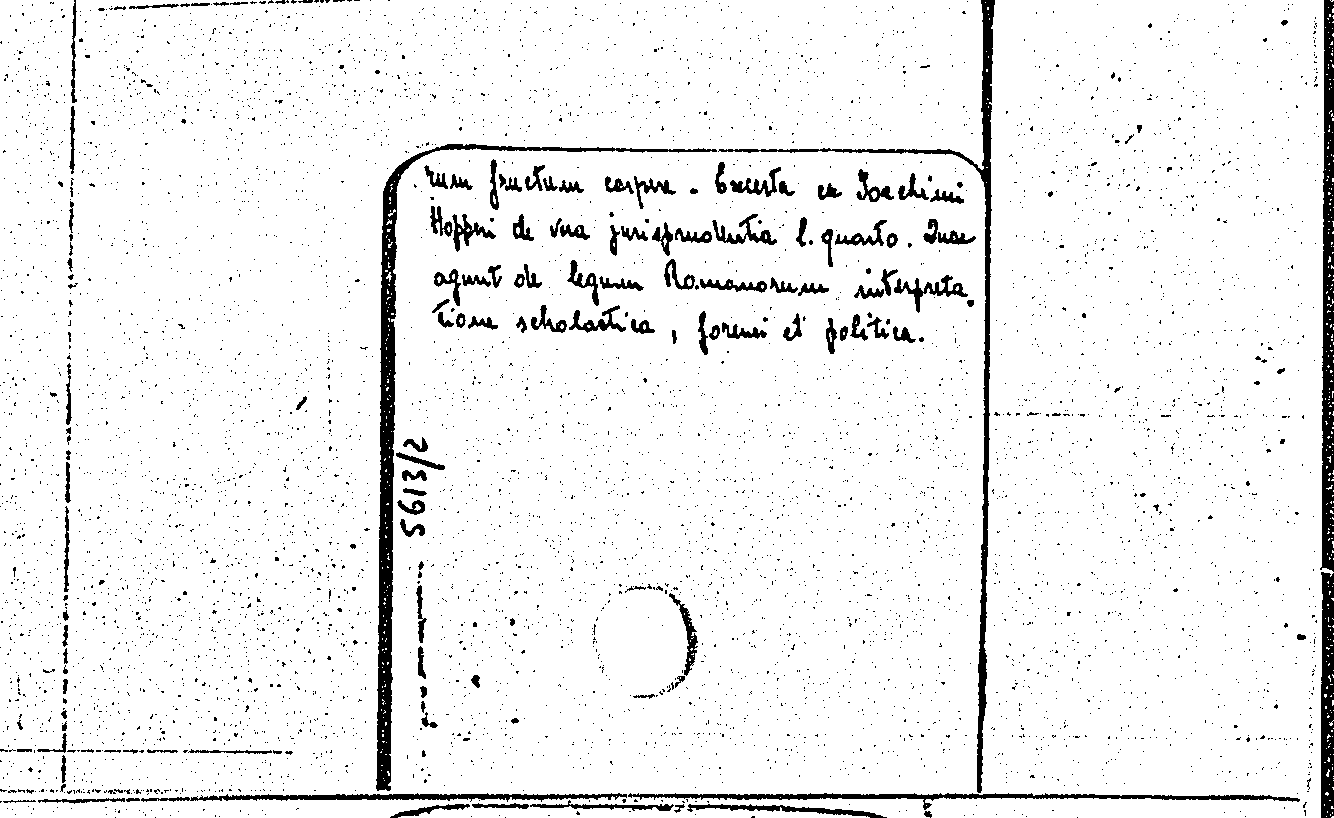 rum fructum carpere. Excerta ex Joachimi
Hopperi de vera jurisprudentia l. quarto. Quae
agunt de legum Romanorum interpreta.
tione scholastica, forensi et politica.
5613/2